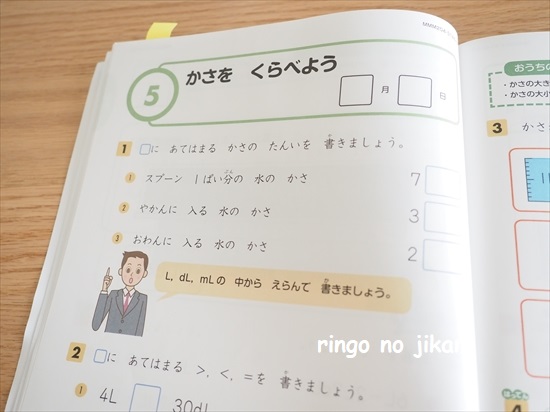 5
かさを くらべよう
月 日
1 □に あてはまる かさの たんいを 書きましょう。
1 スプーン 1ぱい分の 水の かさ 7
2 やかんに 入る 水の かさ 3
3 おわんに 入る 水の かさ 2
L, dL, mLの 中から えらんで 書きましょう。
2 □に あてはまる >, <, =を 書きましょう。
1 4L □ 30dL
おうちの
・かさの大き
・かさの大小
3 かさ
4
ringo no jikan